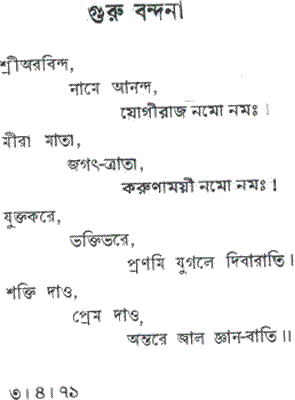 গুরু বন্দনা
শ্রীঅরবিন্দ,
নামে আনন্দ,
যোগীরাজ নমো নমঃ।
মীরা মাতা,
জগৎ-ত্রাতা,
করুণাময়ী নমো নমঃ!
যুক্তকরে,
ভক্তিভরে,
প্রণমি যুগলে দিবারাতি।
শক্তি দাও,
প্রেম দাও,
অন্তরে জ্বাল জ্ঞান-বাতি॥
৩।৪।৭১